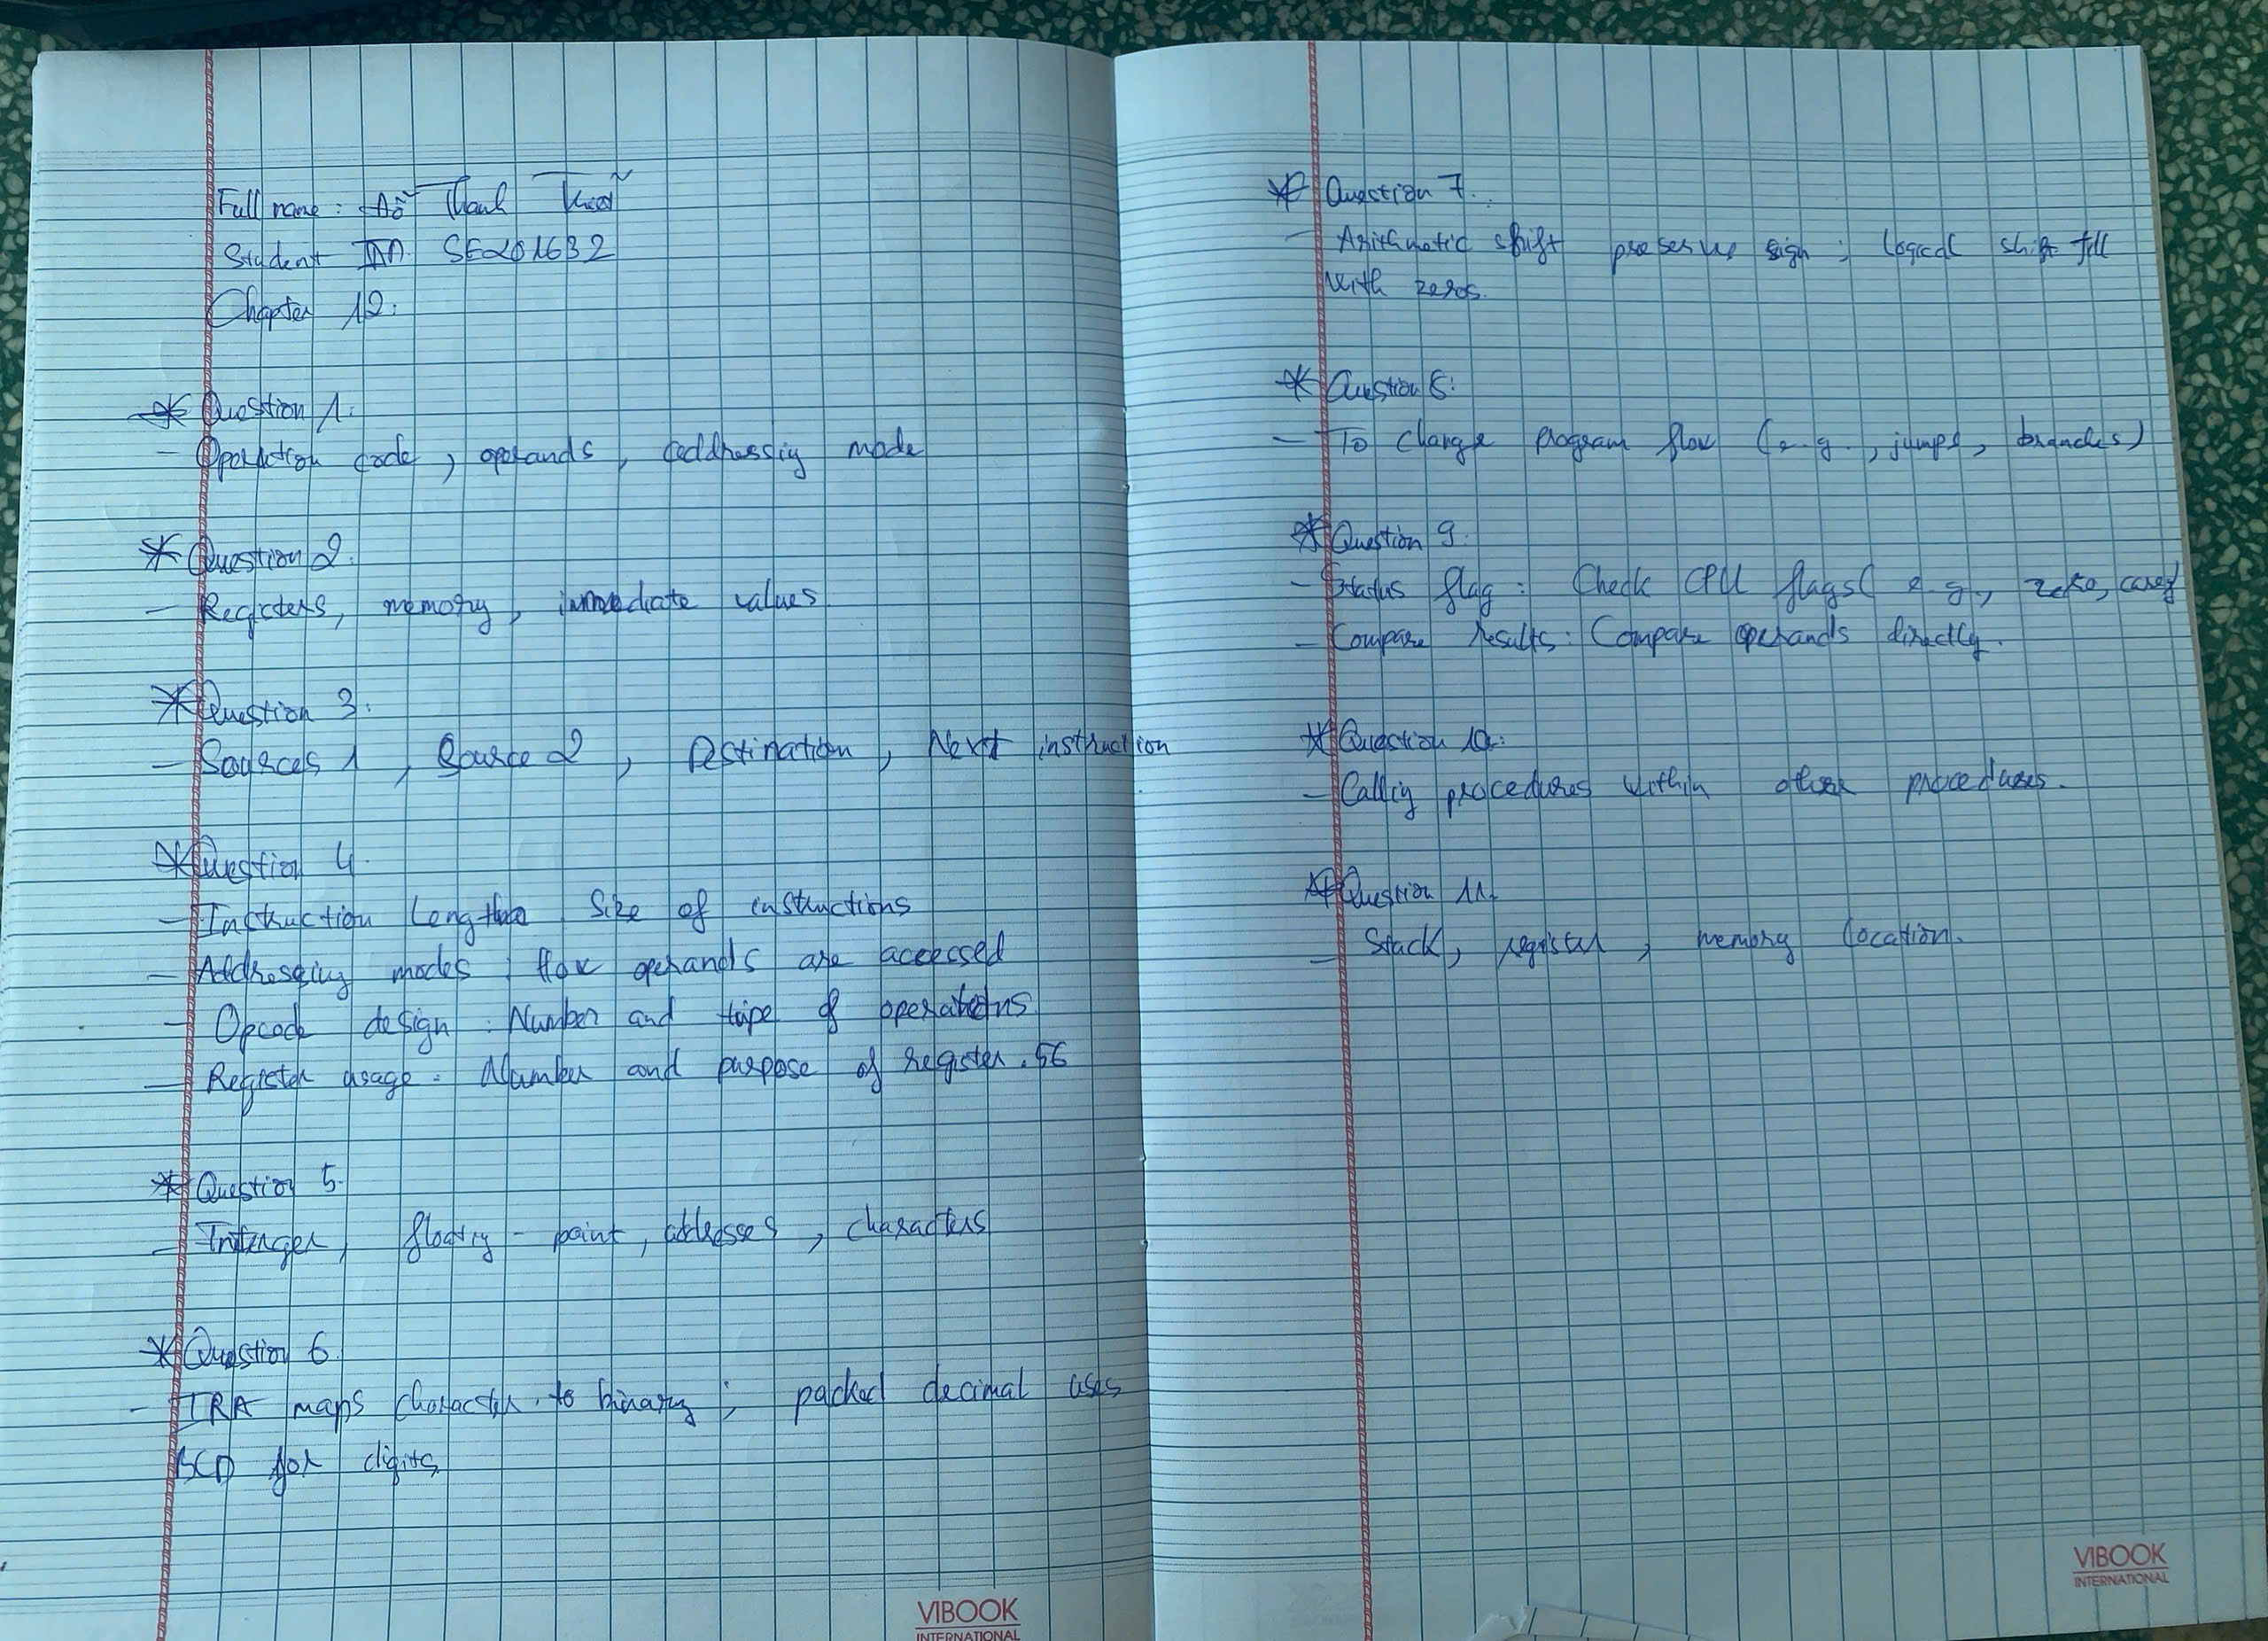 Full name: Đỗ Thanh
Student ID: SE201632
Chapter 12:
* Question 1:
- Operation code, operands, addressing mode
* Question 2:
- Registers, memory, immediate values
* Question 3:
- Sources 1, Source 2, Destination, Next instruction
* Question 4:
- Instruction Length: Size of instructions
- Addressing modes: How operands are accessed
- Opcode design: Number and type of operations
- Register usage: Number and purpose of register.
* Question 5.
- Interger, floating-point, addresses, characters
* Question 6
- IRA maps character to binary; packed decimal uses
BCD for digits
* Question 7.
- Arithmetic shift preserves sign; logical shift fill
with zeros.
* Question 8:
- To change program flow (e.g., jumps, branches)
* Question 9.
- Status flag: Check CPU flags (e.g., zero, carry
- Compare results: Compare operands directly.
* Question 10:
- Calling procedures within other procedures.
* Question 11.
- Stack, register, memory location.
VIBOOK
INTERNATIONAL
VIBOOK
INTERNATIONAL